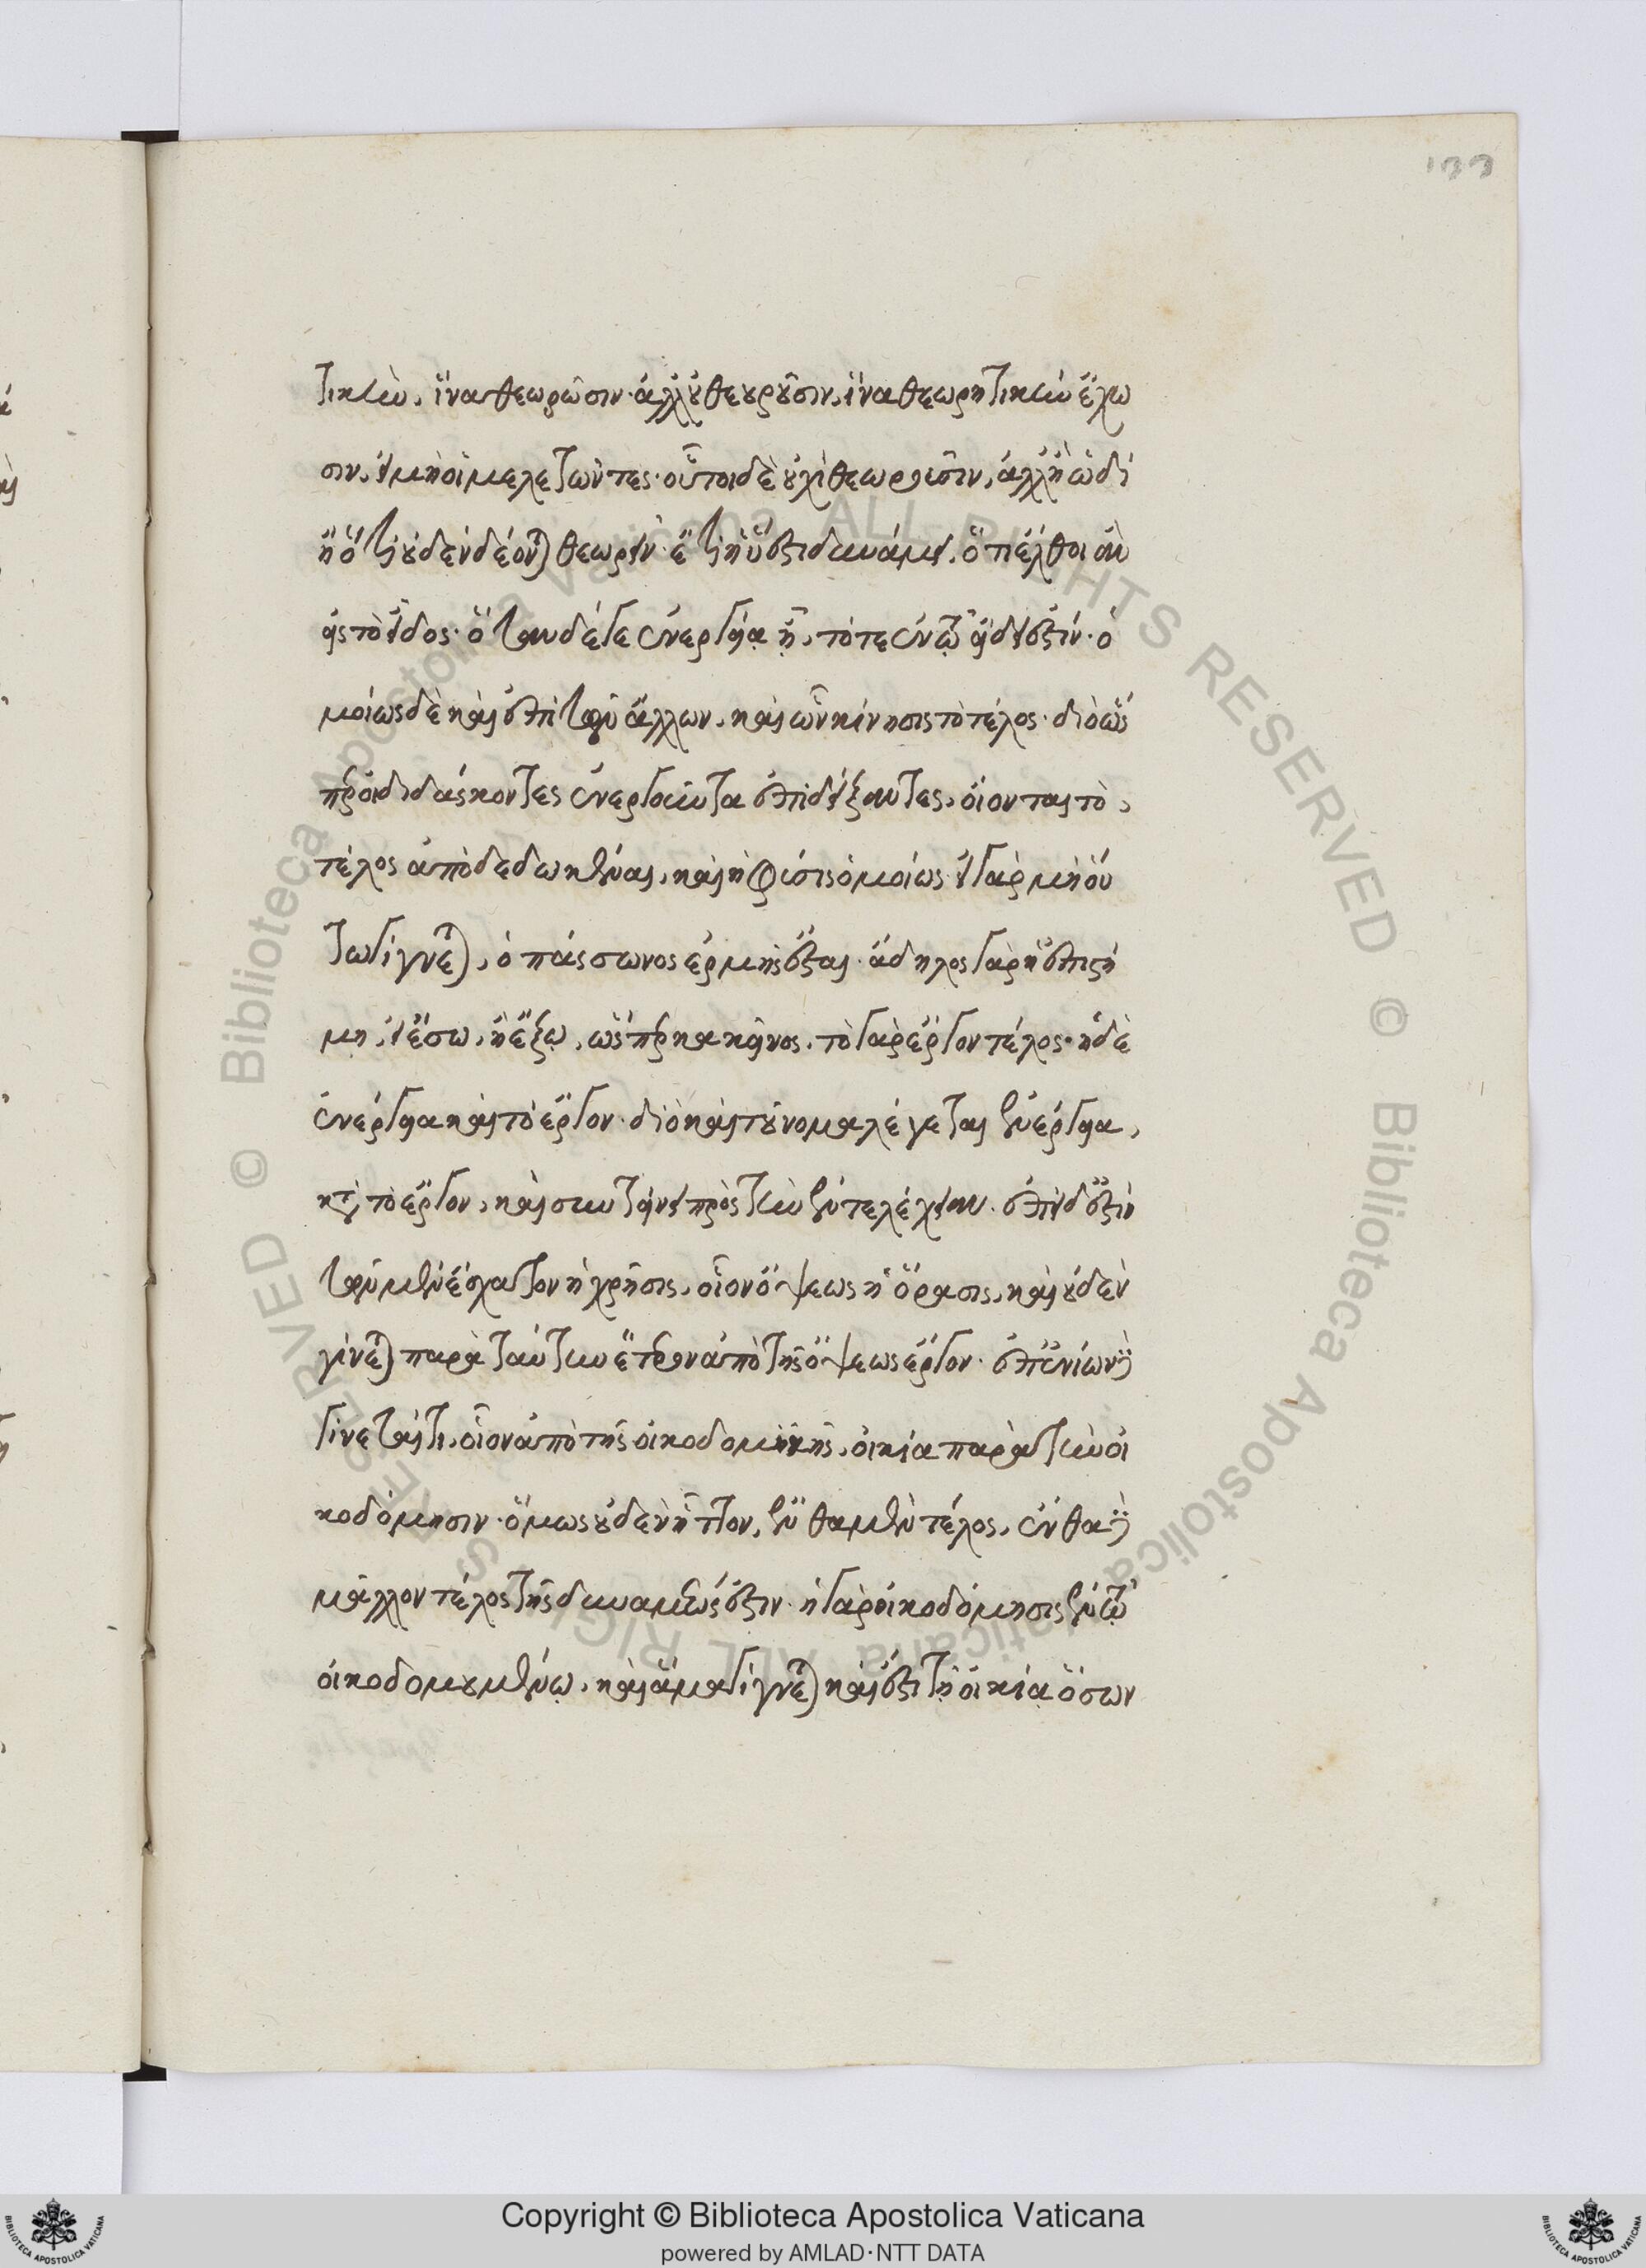 133
τικὴν, ἵνα θεωρῶσιν· ἀλλ' οὐ θεωροῦσιν, ἵνα θεωρητικὴν ἔχω
σιν, εἰ μὴ οἱ μελετῶντες· οὗτοι δὲ οὐχὶ θεωροῦσιν, ἀλλ' ἢ ὡδὶ
ἢ ὅτι οὐδὲν δέονται θεωρεῖν· ἔτι ἡ ὕλη ἐστὶ δυνάμει, ὅτι ἔλθοι ἂν
εἰς τὸ εἶδος· ὅταν δέ γε ἐνεργείᾳ ᾖ, τότε ἐν τῷ εἴδει ἐστίν· ὁ
μοίως δὲ καὶ ἐπὶ τῶν ἄλλων, καὶ ὧν κίνησις τὸ τέλος· διὸ ὥς
περ οἱ διδάσκοντες ἐνεργοῦντα ἐπιδείξαντες, οἴονται τὸ,
τέλος ἀποδεδωκέναι, καὶ ἡ φύσις ὁμοίως· εἰ γὰρ μὴ οὕ
τω γίγνεται, ὁ πάσσωνος ἑρμῆς ἔσται· ἄδηλος γὰρ ἡ ἐπιστή
μη, εἰ ἔσω, ἢ ἔξω, ὥσπερ κἀκεῖνος, τὸ γὰρ ἔργον τέλος· ἡ δὲ
ἐνέργεια καὶ τὸ ἔργον· διὸ καὶ τοὔνομα λέγεται ἐνέργεια,
κατὰ τὸ ἔργον, καὶ συντείνει πρὸς τὴν ἐντελέχειαν· ἐπεὶ δ' ἐστὶ
τῶν μὲν ἔσχατον ἡ χρῆσις, οἷον ὄψεως ἡ ὅρασις, καὶ οὐδὲν
γίνεται παρὰ ταύτην ἕτερον ἀπὸ τῆς ὄψεως ἔργον· ἀπ' ἐνίων δὲ
γίνεταί τι, οἷον ἀπὸ τῆς οἰκοδομικῆς, οἰκία παρὰ τὴν οἰ
κοδόμησιν· ὅμως οὐδὲν ἧττον, ἔνθα μὲν τέλος, ἔνθα δὲ
μᾶλλον τέλος τῆς δυνάμεώς ἐστιν· ἡ γὰρ οἰκοδόμησις ἐν τῷ
οἰκοδομουμένῳ, καὶ ἅμα γίγνεται καὶ ἔστι τῇ οἰκίᾳ· ὅσων
Copyright © Biblioteca Apostolica Vaticana
powered by AMLAD·NTT DATA